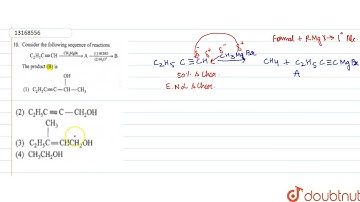 13168556
10. Consider the following sequence of reactions
C₂H₅C≡CH → A → B
The product (B) is
OH
(1) C₂H₅C≡C—CH—CH₃
(2) C₂H₅C≡C—CH₂OH
CH₃
(3) C₂H₅C=CHCH₂OH
(4) CH₃CH₂OH
Formal + RMgX → 1° Alc.
δ⁻ δ⁺ δ⁻ δ⁺
C₂H₅ C≡CH CH₃MgBr → CH₄ + C₂H₅C≡CMgBr
50% s Char. A
E.No↓ s Char.
doubtnut